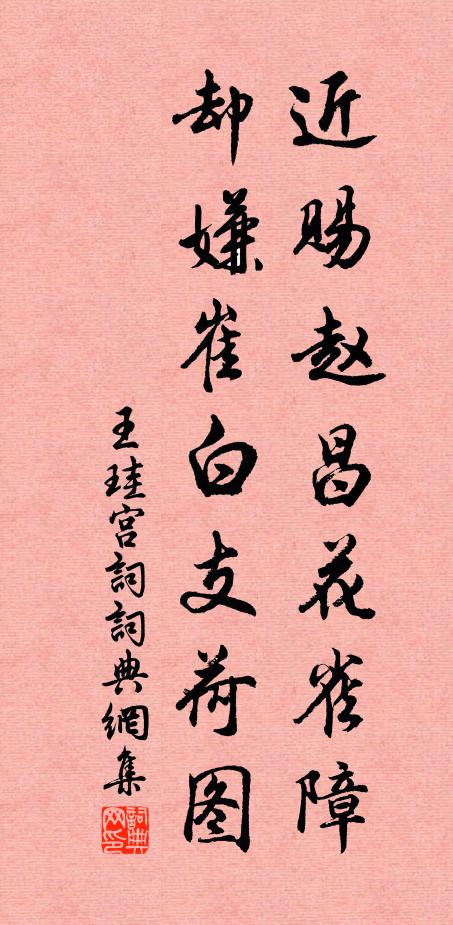 近赐赵昌花雀障
却嫌崔白支荷图
王珪宫詞詞典網集
詞典网印